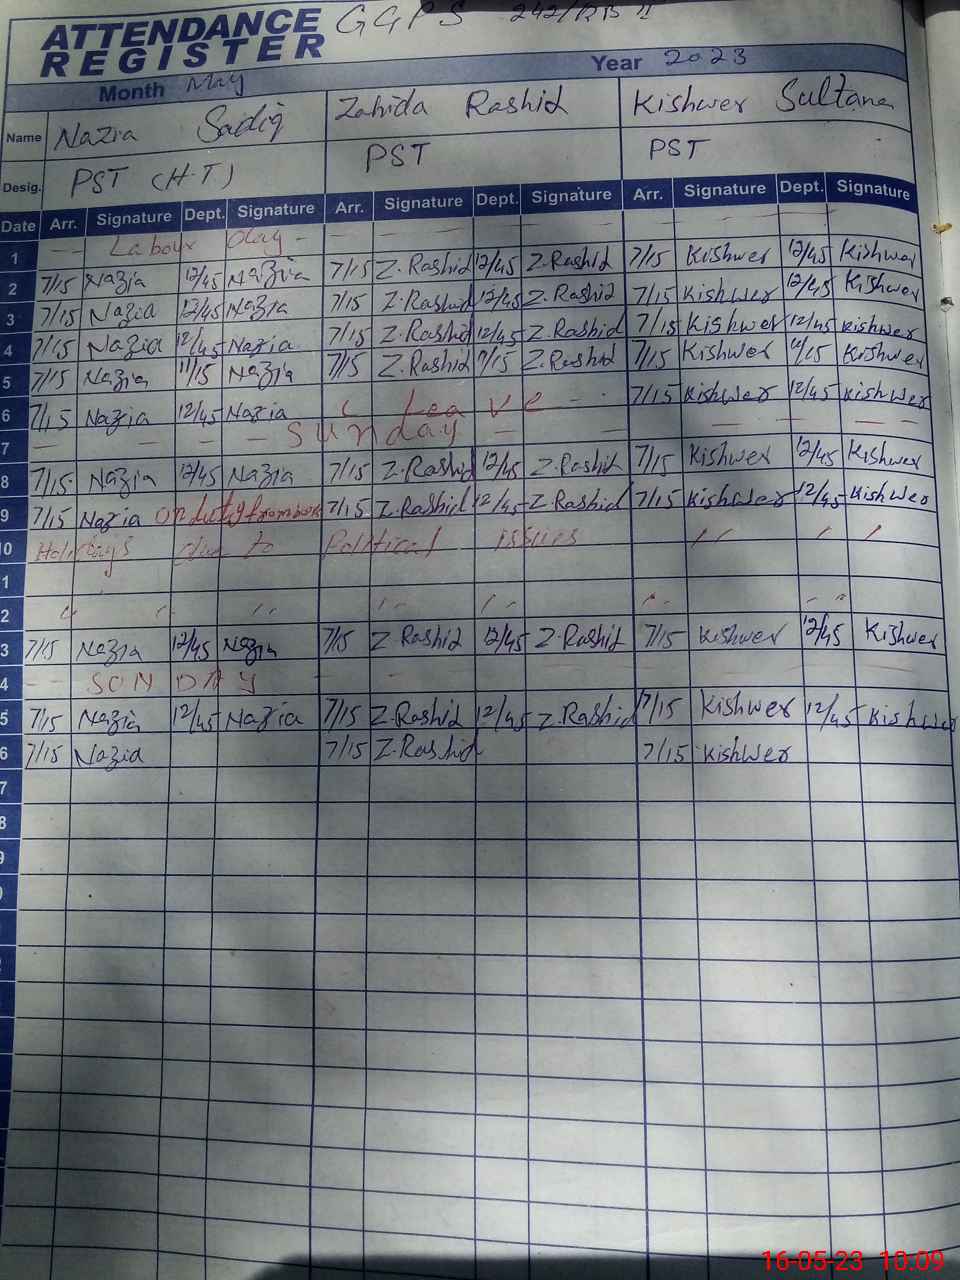 ATTENDANCE GGPS 242/RB II
REGISTER
Month May Year 2023
Name Nazia Sadiq Zahida Rashid Kishwer Sultana
Desig. PST (H.T) PST PST
Date Arr. Signature Dept. Signature Arr. Signature Dept. Signature Arr. Signature Dept. Signature
1 Labour Day
2 7/15 Nazia 12/45 Nazia 7/15 Z.Rashid 12/45 Z.Rashid 7/15 Kishwer 12/45 Kishwer
3 7/15 Nazia 12/45 Nazia 7/15 Z.Rashid 12/45 Z.Rashid 7/15 Kishwer 12/45 Kishwer
4 7/15 Nazia 12/45 Nazia 7/15 Z.Rashid 12/45 Z.Rashid 7/15 Kishwer 12/45 Kishwer
5 7/15 Nazia 11/15 Nazia 7/15 Z.Rashid 11/15 Z.Rashid 7/15 Kishwer 11/15 Kishwer
6 7/15 Nazia 12/45 Nazia C Leave 7/15 Kishwer 12/45 Kishwer
7 Sunday
8 7/15 Nazia 12/45 Nazia 7/15 Z.Rashid 12/45 Z.Rashid 7/15 Kishwer 12/45 Kishwer
9 7/15 Nazia on duty 7/15 Z.Rashid 12/45 Z.Rashid 7/15 Kishwer 12/45 Kishwer
10 Holidays due to Political issues
1
2
3 7/15 Nazia 12/45 Nazia 7/15 Z.Rashid 12/45 Z.Rashid 7/15 Kishwer 12/45 Kishwer
4 SUNDAY
5 7/15 Nazia 12/45 Nazia 7/15 Z.Rashid 12/45 Z.Rashid 7/15 Kishwer 12/45 Kishwer
6 7/15 Nazia 7/15 Z.Rashid 7/15 Kishwer
7
8
9
16-05-23 10.09